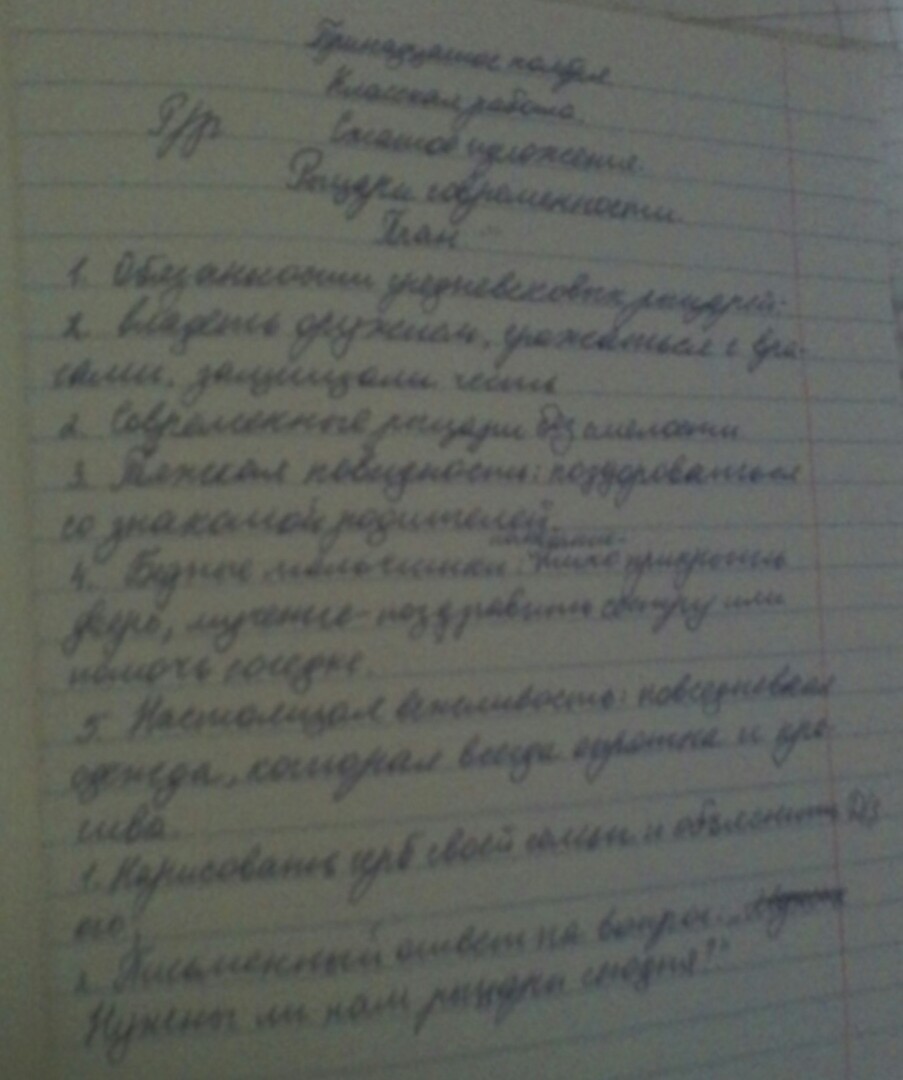 Тринадцатое ноября
Классная работа.
Р/р Сжатое изложение.
Рыцари современности.
План
1. Обязанности средневековых рыцарей:
2. владеть оружием, сражаться с вра-
гами, защищали честь
2. Современные рыцари без смелости
3. Тяжская повидность: поздороваться
со знакомой родителей.
4. Бедные мальчишки: тихо прикрыть
дверь, мученье - поздравить сестру или
помочь соседке.
5. Настоящая вежливость: повседневная
одежда, которая всегда опрятна и кра-
сива.
1. Нарисовать герб своей семьи и объяснить Д/з
его.
2. Письменный ответ на вопрос: „
Нужены ли нам рыцари сегодня?"